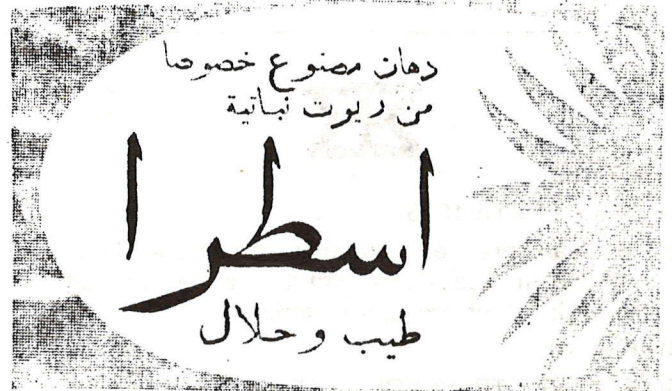 دهان مصنوع خصوصا
من زيوت نباتية
اسطرا
طيب وحلال